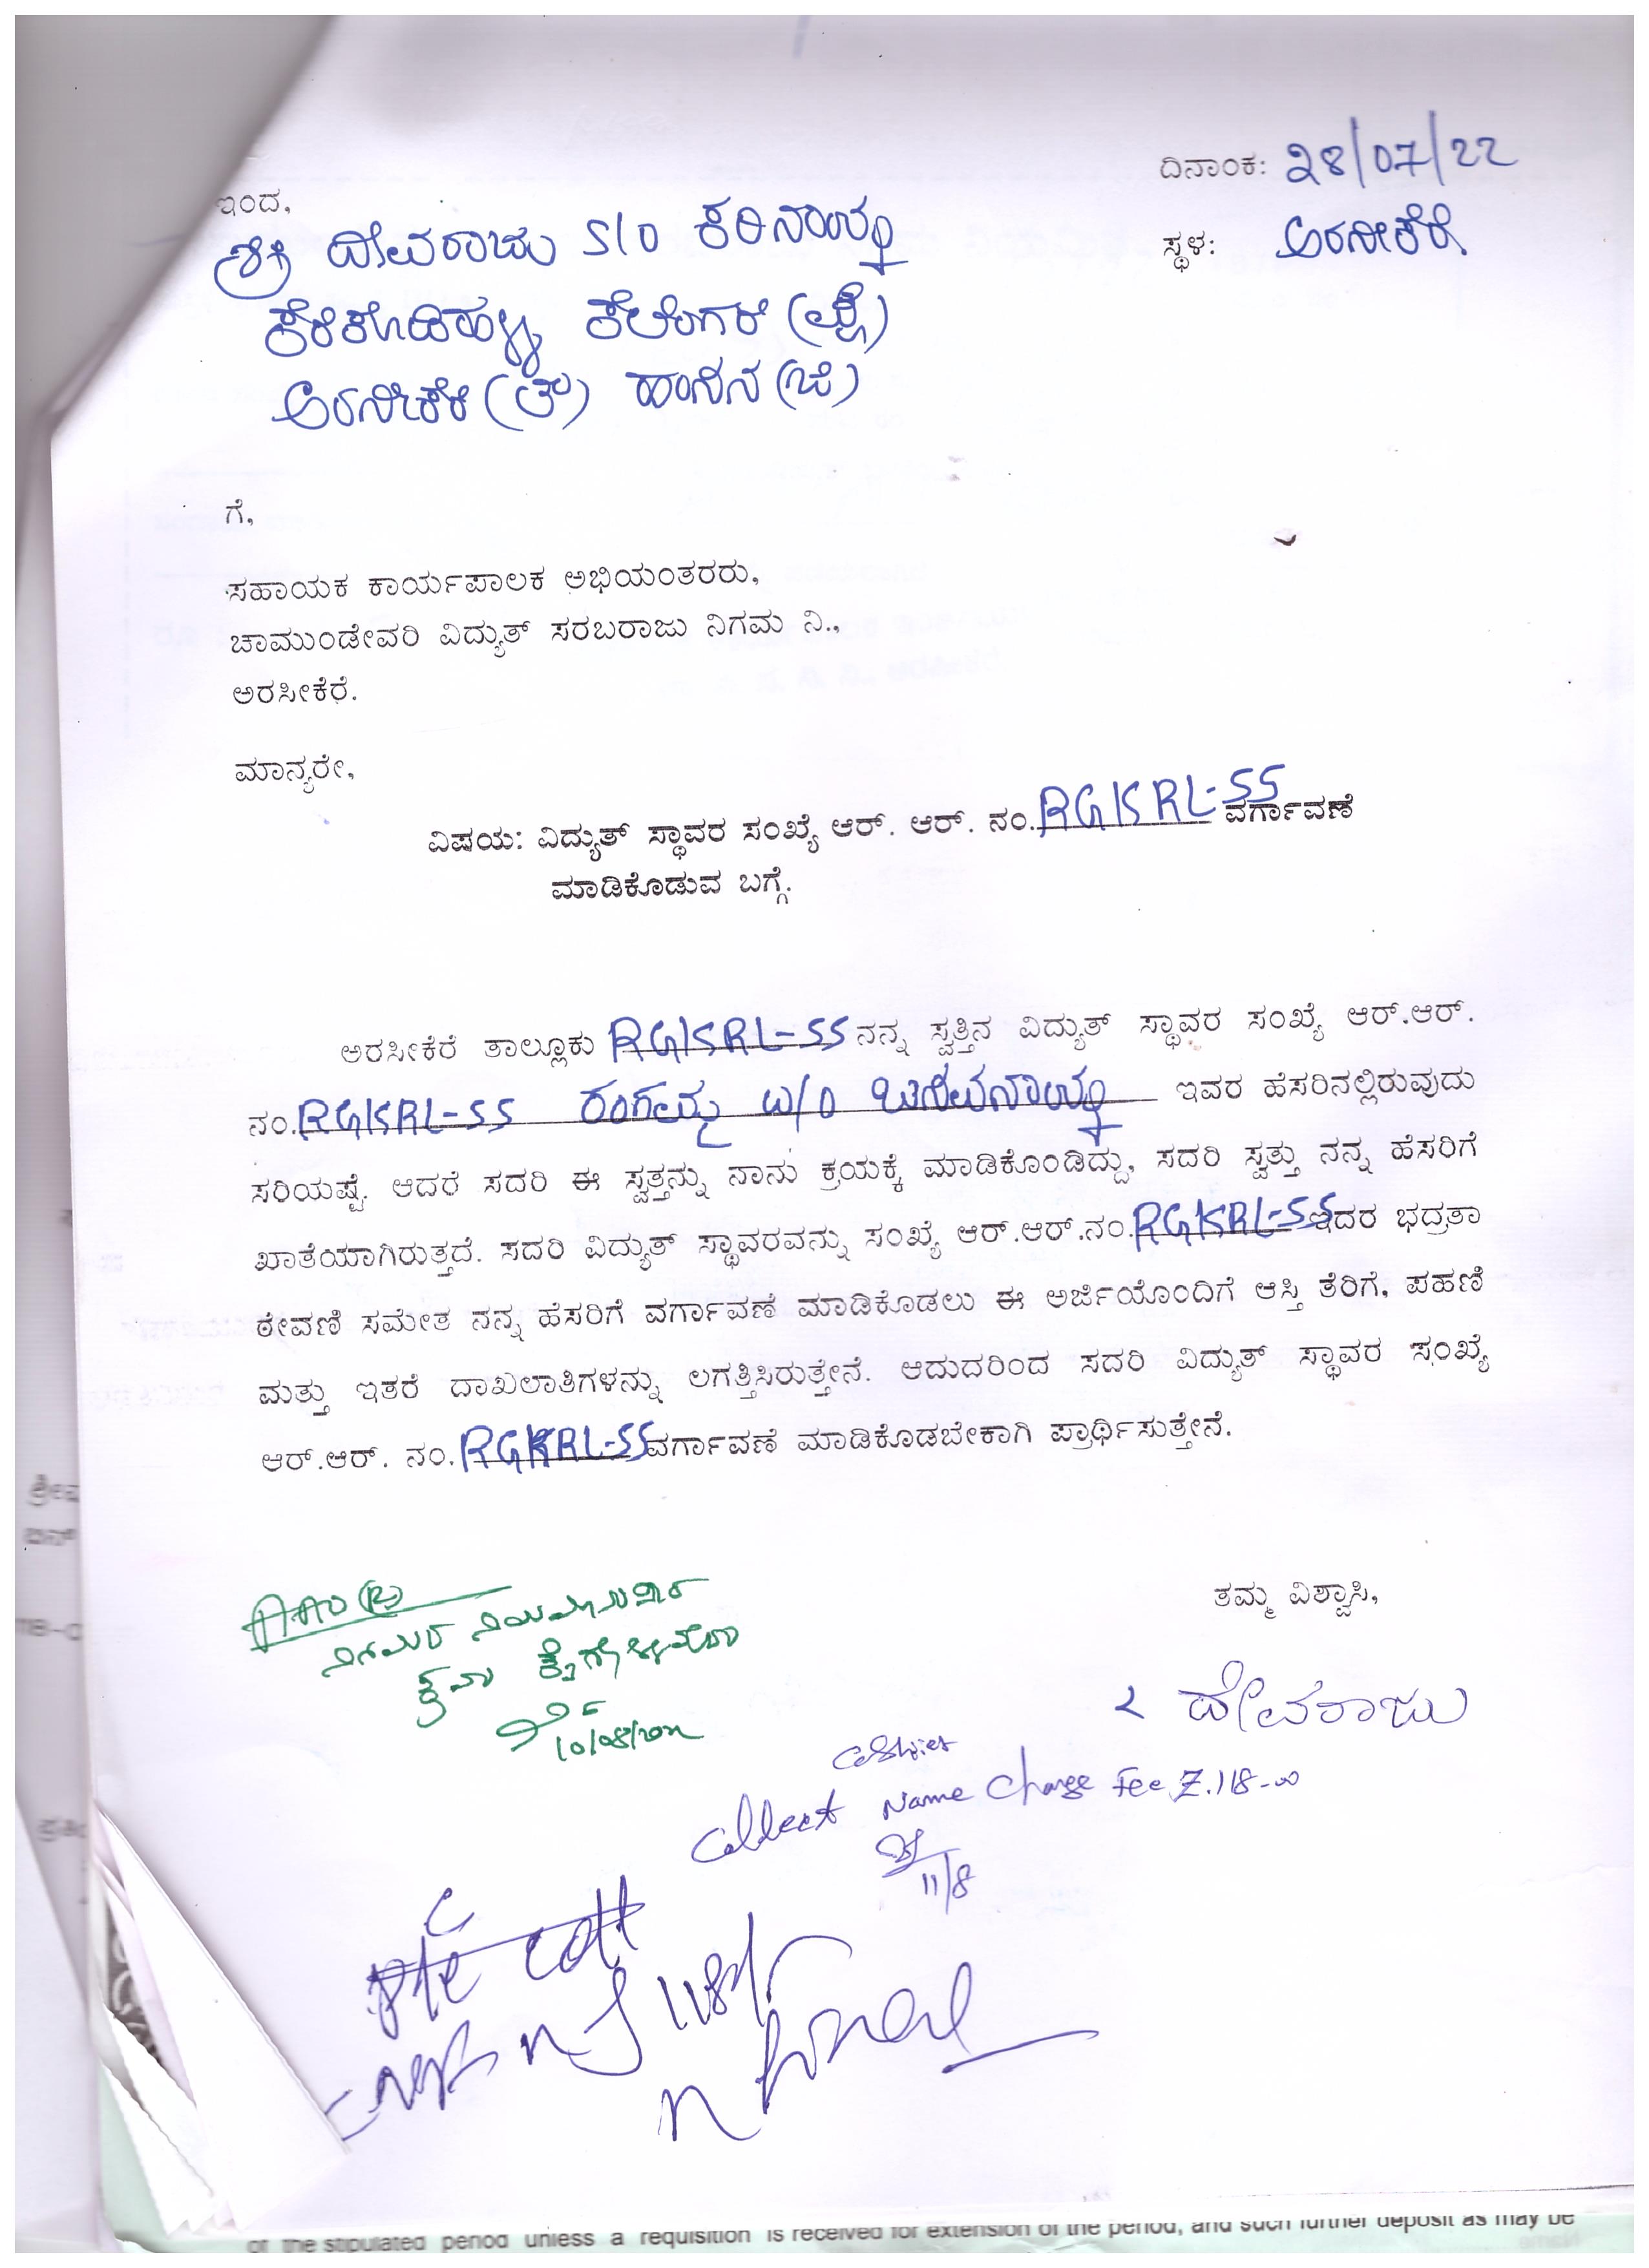 ದಿನಾಂಕ: 28/07/22
ಇಂದ,
ಸ್ಥಳ: ಅರಸೀಕೆರೆ
ಶ್ರೀ ದೇವರಾಜು S/O ಕರಿನಾಯ್ಕ
ಕೆರೆಕೋಡಿಹಳ್ಳಿ
ಅರಸೀಕೆರೆ (ತಾ) ಹಾಸನ (ಜಿ)
ಗೆ,
ಸಹಾಯಕ ಕಾರ್ಯಪಾಲಕ ಅಭಿಯಂತರರು,
ಚಾಮುಂಡೇವರಿ ವಿದ್ಯುತ್ ಸರಬರಾಜು ನಿಗಮ ನಿ.,
ಅರಸೀಕೆರೆ.
ಮಾನ್ಯರೇ,
ವಿಷಯ: ವಿದ್ಯುತ್ ಸ್ಥಾವರ ಸಂಖ್ಯೆ ಆರ್. ಆರ್. ನಂ. RGKRL-55 ವರ್ಗಾವಣೆ
ಮಾಡಿಕೊಡುವ ಬಗ್ಗೆ.
ಅರಸೀಕೆರೆ ತಾಲ್ಲೂಕು RGKRL-55 ನನ್ನ ಸ್ವತ್ತಿನ ವಿದ್ಯುತ್ ಸ್ಥಾವರ ಸಂಖ್ಯೆ ಆರ್.ಆರ್.
ನಂ. RGKRL-55 ರಂಗಮ್ಮ W/O ಇವರ ಹೆಸರಿನಲ್ಲಿರುವುದು
ಸರಿಯಷ್ಟೆ. ಆದರೆ ಸದರಿ ಈ ಸ್ವತ್ತನ್ನು ನಾನು ಕ್ರಯಕ್ಕೆ ಮಾಡಿಕೊಂಡಿದ್ದು, ಸದರಿ ಸ್ವತ್ತು ನನ್ನ ಹೆಸರಿಗೆ
ಖಾತೆಯಾಗಿರುತ್ತದೆ. ಸದರಿ ವಿದ್ಯುತ್ ಸ್ಥಾವರವನ್ನು ಸಂಖ್ಯೆ ಆರ್.ಆರ್.ನಂ. RGKRL-55 ಇದರ ಭದ್ರತಾ
ಠೇವಣಿ ಸಮೇತ ನನ್ನ ಹೆಸರಿಗೆ ವರ್ಗಾವಣೆ ಮಾಡಿಕೊಡಲು ಈ ಅರ್ಜಿಯೊಂದಿಗೆ ಆಸ್ತಿ ತೆರಿಗೆ, ಪಹಣಿ
ಮತ್ತು ಇತರೆ ದಾಖಲಾತಿಗಳನ್ನು ಲಗತ್ತಿಸಿರುತ್ತೇನೆ. ಆದುದರಿಂದ ಸದರಿ ವಿದ್ಯುತ್ ಸ್ಥಾವರ ಸಂಖ್ಯೆ
ಆರ್.ಆರ್. ನಂ. RGKRL-55 ವರ್ಗಾವಣೆ ಮಾಡಿಕೊಡಬೇಕಾಗಿ ಪ್ರಾರ್ಥಿಸುತ್ತೇನೆ.
ತಮ್ಮ ವಿಶ್ವಾಸಿ,
AAO (R)
ದೇವರಾಜು
Cashier
Collect Name Change Fee 118-00
11/8
of the stipulated period unless a requisition is received for extension of the period, and such further deposit as may be